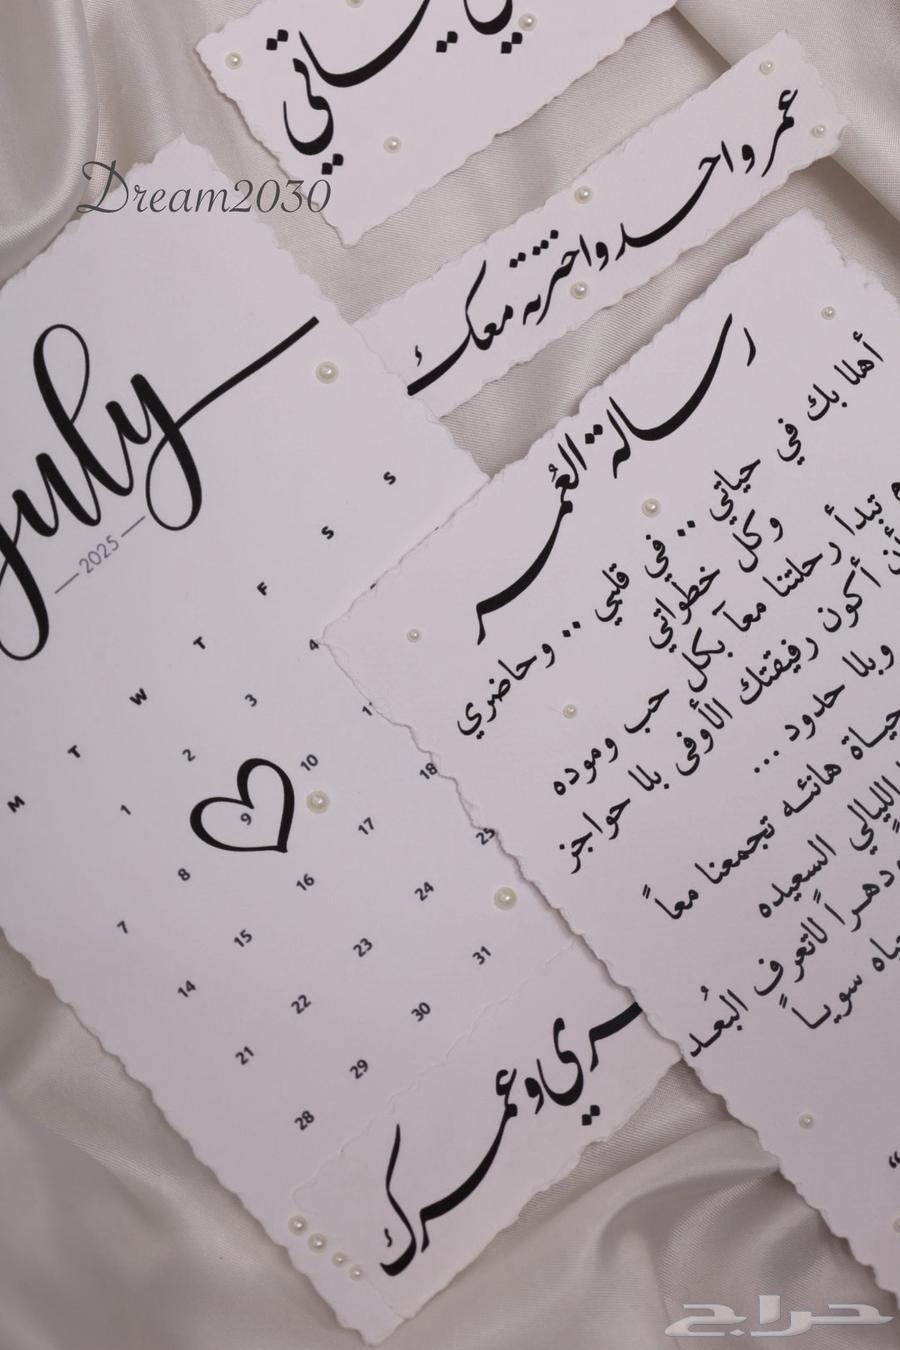 Dream2030
عمر واحد واخترته معك
July
2025
M T W T F S S
1 2 3 4
7 8 9 10 11
14 15 16 17 18
21 22 23 24 25
28 29 30 31
رسالة العُمر
أهلا بك في حياتي .. في قلبي .. وحاضري
وكل خطواتي
تبدأ رحلتنا معاً بكل حب وموده
أن أكون رفيقتك الأوفى بلا حواجز
وبلا حدود ...
حياة هانئه تجمعنا معاً
الليالي السعيده
دهراً لاتعرف البُعد
سوياً
وعمرك
حراج